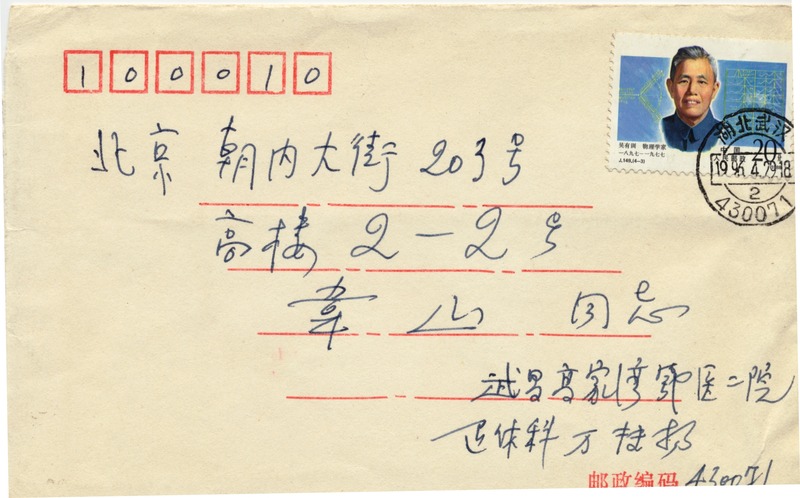 100010
北京 朝内大街 203号
高楼 2-2号
韦 山 同志
武昌高家湾鄂医二院
退休科 万桂
邮政编码 430071
吴有训 物理学家
一八九七-一九七七
J.149.(4-3)
中国
20
湖北武汉
1996.4.29.18
2
430071